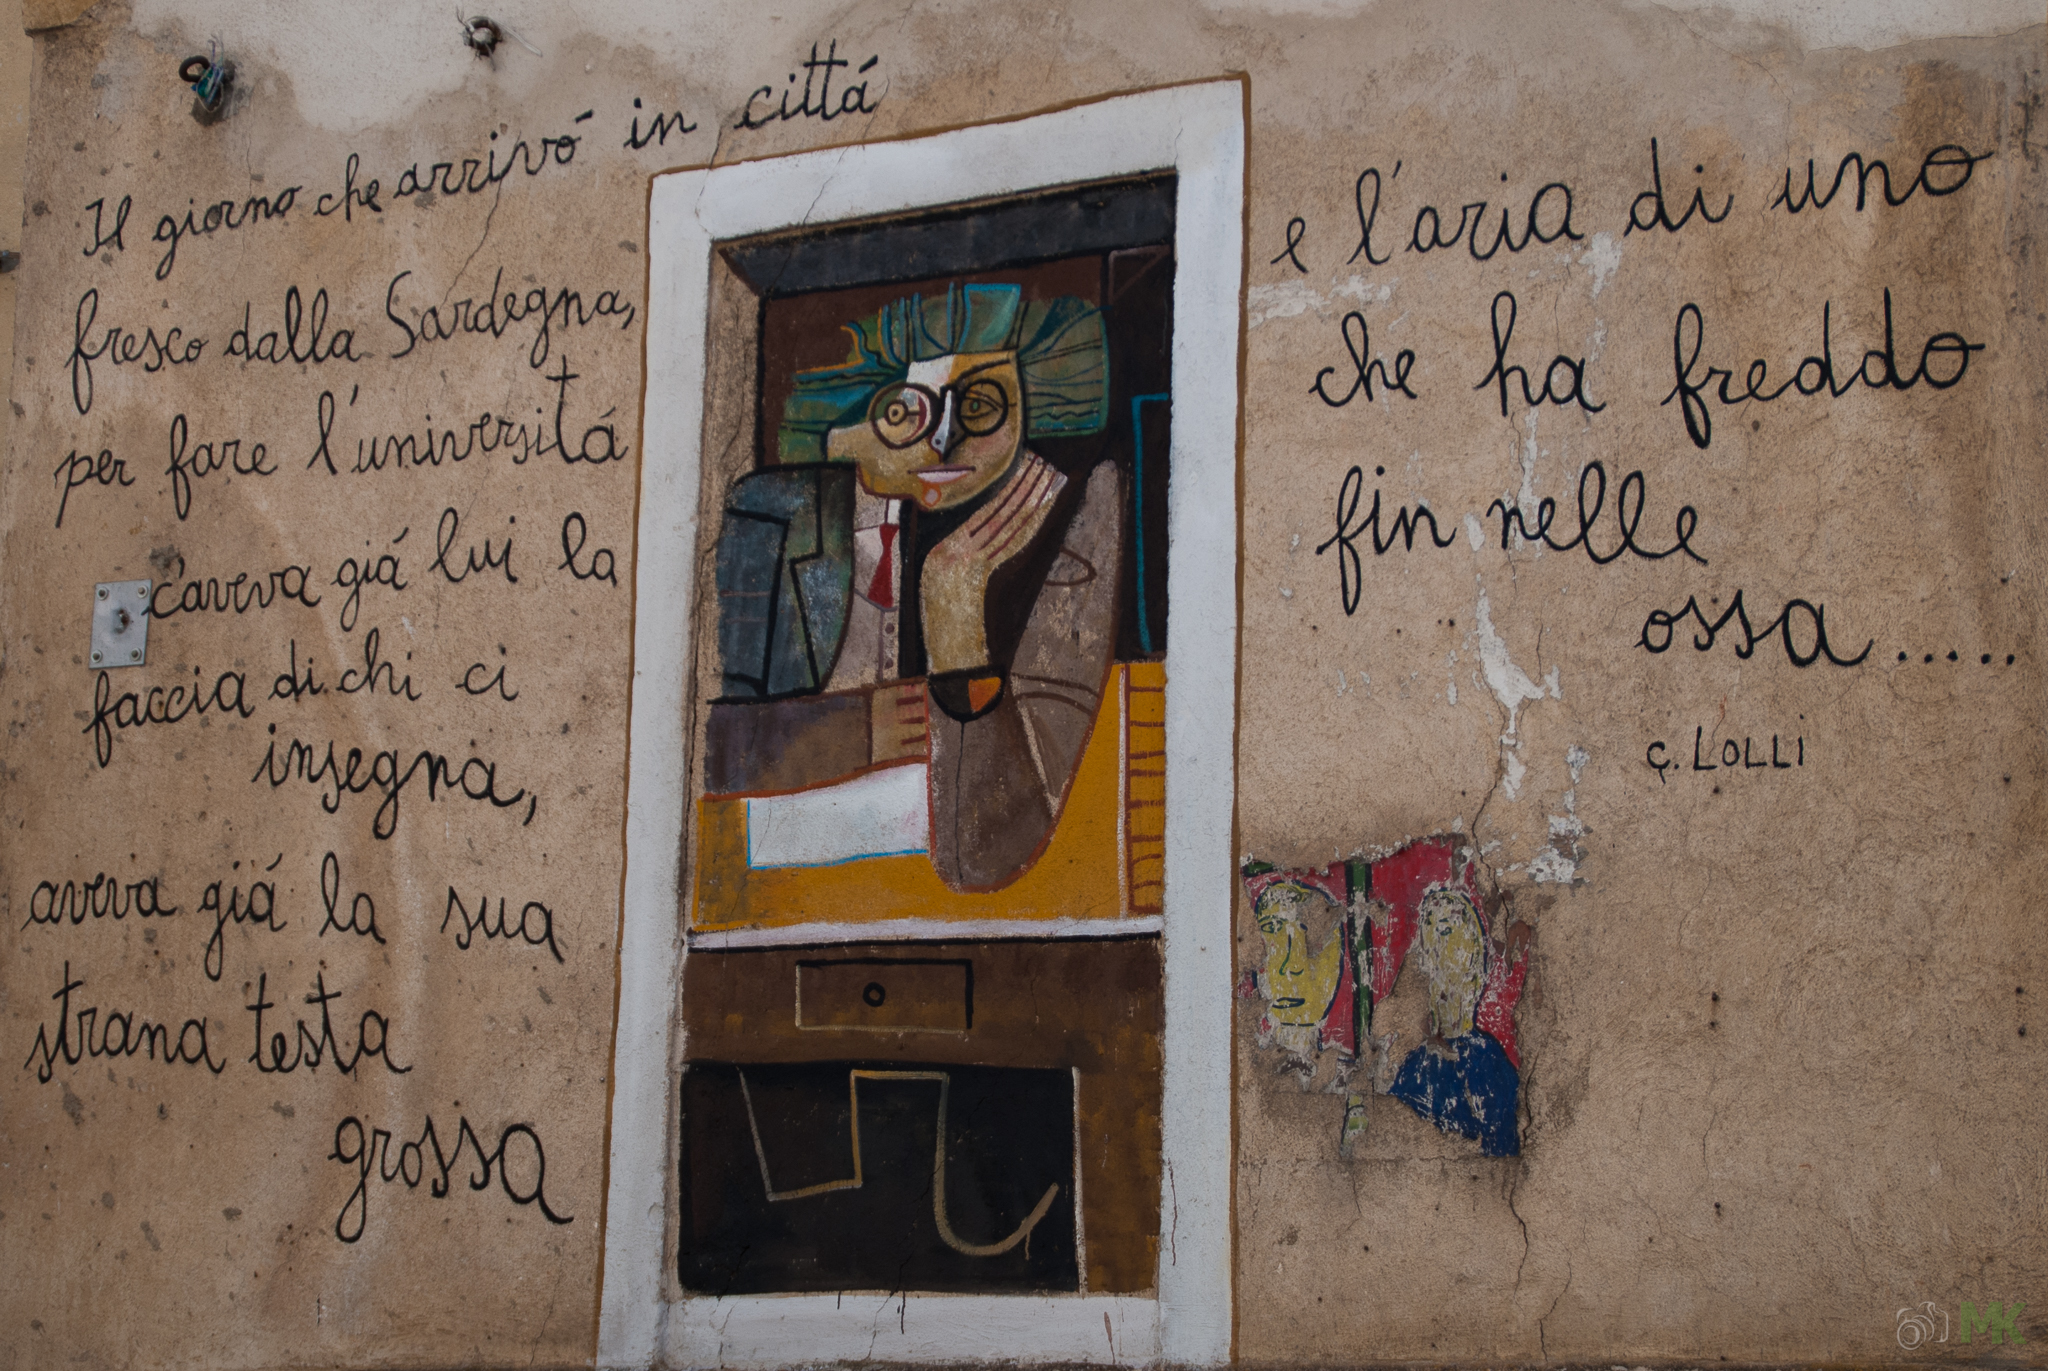 Il giorno che arrivó in cittá
fresco dalla Sardegna,
per fare l'universitá
c'aveva giá lui la
faccia di chi ci
insegna,
aveva giá la sua
strana testa
grossa
e l'aria di uno
che ha freddo
fin nelle
ossa.....
C. LOLLI
MK